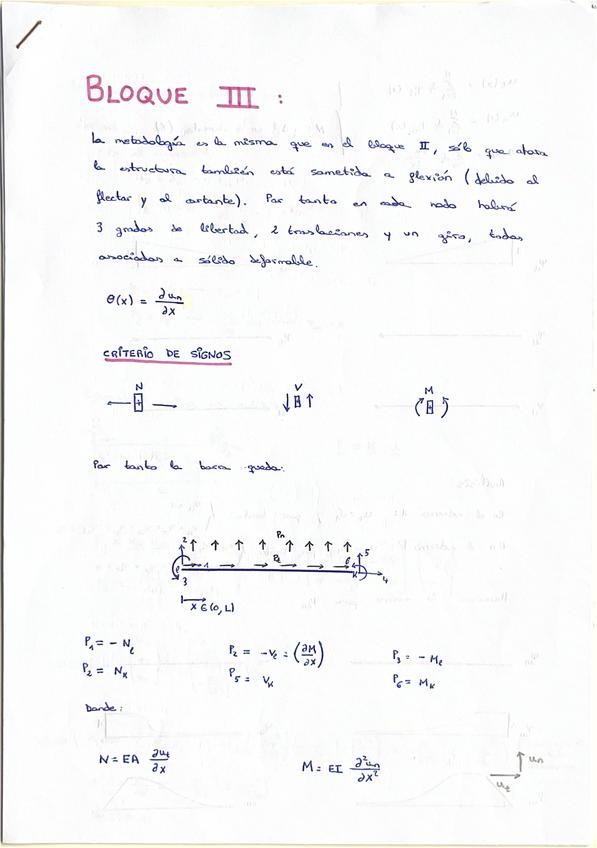 BLOQUE III :
La metodología es la misma que en el bloque II, sólo que ahora
la estructura también está sometida a flexión (debido al
flector y al cortante). Por tanto en cada nodo habrá
3 grados de libertad, 2 traslaciones y un giro, todas
asociadas a sólido deformable.
θ(x) = ∂un/∂x
CRITERIO DE SIGNOS
N V M
+ + +
Por tanto la barra queda:
Pn
2 5
Pt
1 4
3
x ∈ (0, L)
P1 = - Nl P2 = -Vl = (∂M/∂x) P3 = - Ml
P2 = Nk P5 = Vk P6 = Mk
Donde:
N = EA ∂ut/∂x M = EI ∂²un/∂x² un
ut